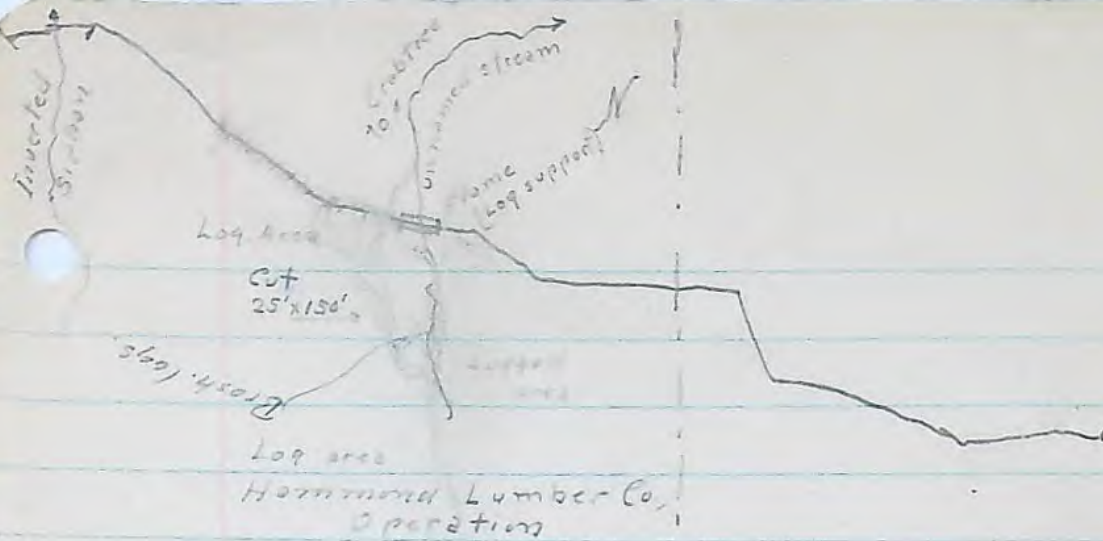 Inverted
Siphon
To Crabtree
Unnamed stream
Flume
Log support
N
Log Area
Cut
25'x150'
Brush, logs,
Log area
Hammond Lumber Co,
Operation